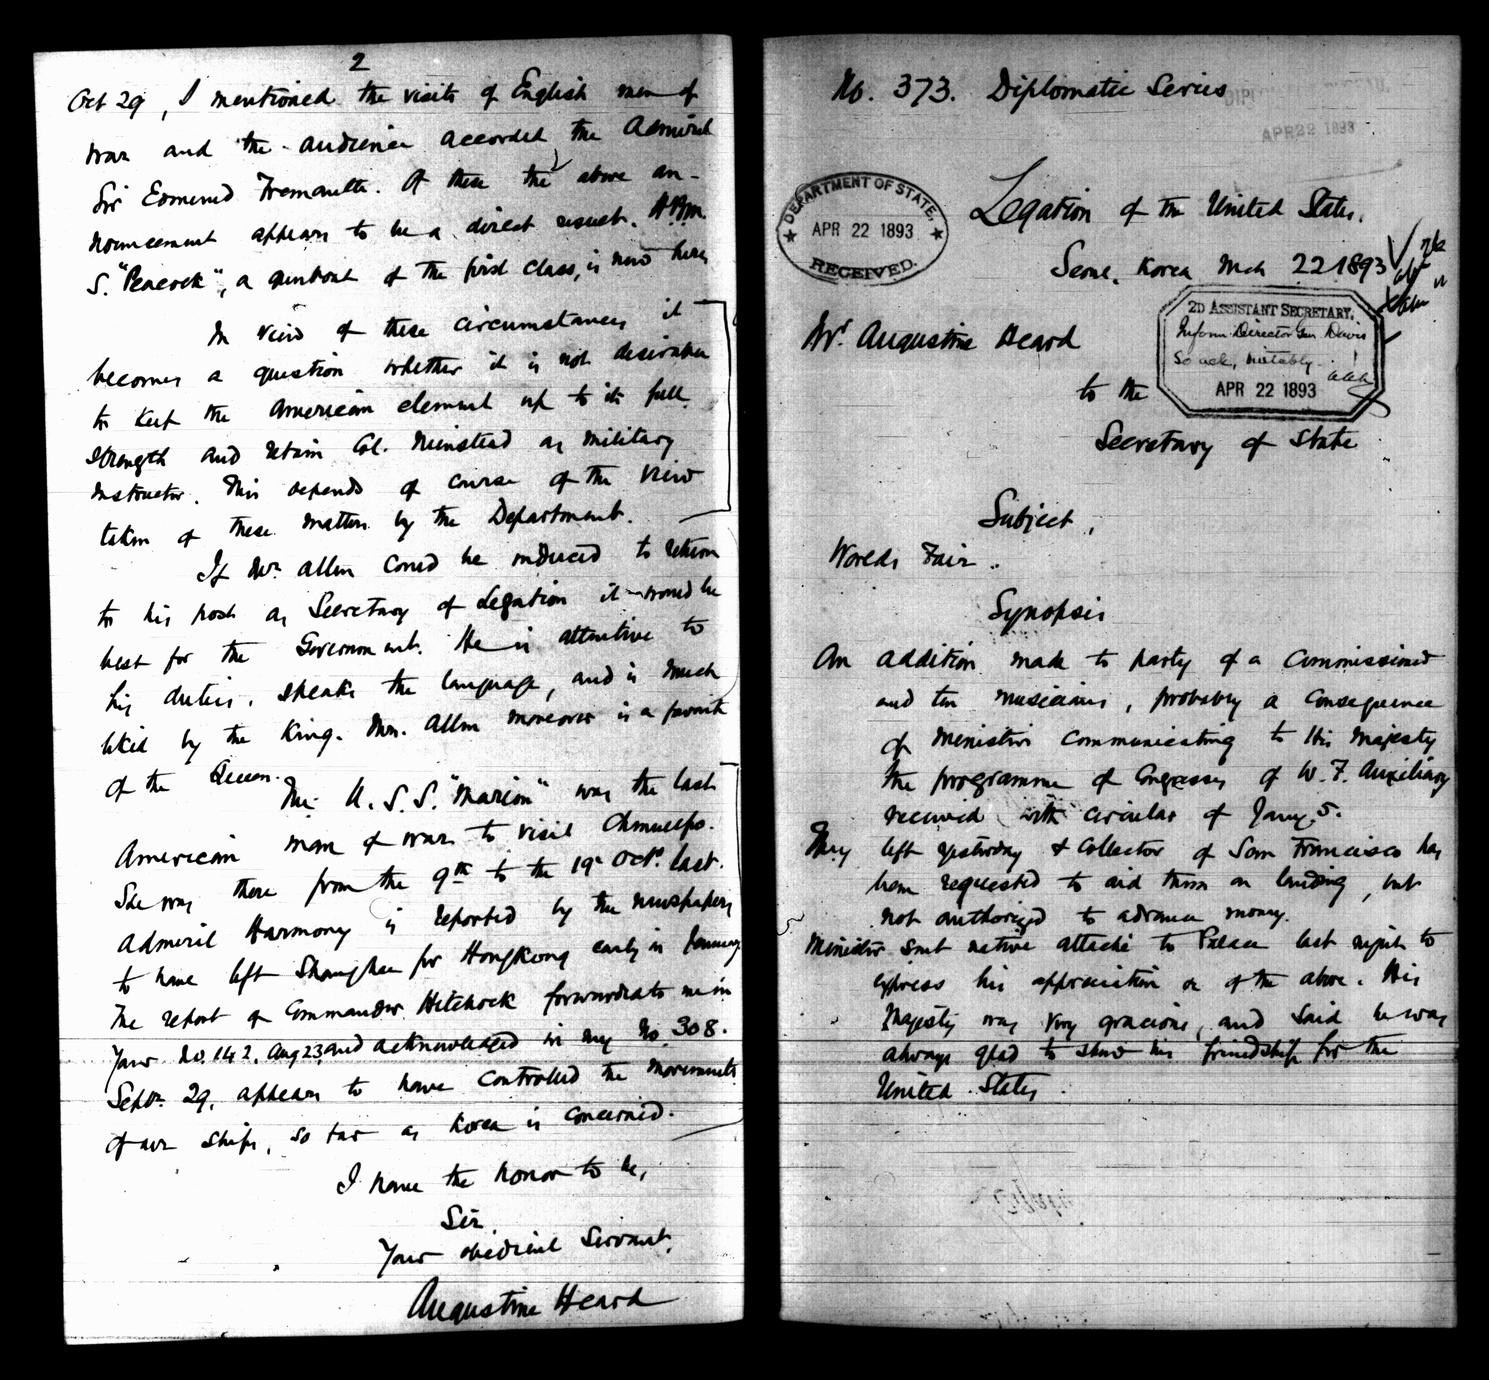 2
Oct 29, I mentioned the visits of English men of
war and the audience accorded the Admiral
Sir Edmund Fremantle. Of these the above an-
nouncement appears to be a direct result. H.B.M.
S. "Peacock", a gunboat of the first class, is now here.
In view of these circumstances it
becomes a question whether it is not desirable
to keep the American element up to its full
strength and retain Col. Nienstead as military
instructor. This depends of course of the view
taken of these matters by the Department.
If Dr. Allen could be induced to return
to his post as Secretary of Legation it would be
best for the Government. He is attentive to
his duties, speaks the language, and is much
liked by the King. Mrs. Allen moreover is a favorite
of the Queen.
The U.S.S. "Marion" was the last
American man of war to visit Chemulpo.
She was there from the 9th to the 19th Octr. last.
Admiral Harmony is reported by the newspapers
to have left Shanghai for HongKong early in January.
The report of Commander Hitchcock forwarded to me in
Your No. 142, Aug 23, and acknowledged in my No. 308.
Septr. 29, appears to have controlled the movements
of our ships, so far as Korea is concerned.
I have the honor to be,
Sir,
Your obedient Servant,
Augustine Heard
No. 373. Diplomatic Series
APR 22 1893
Legation of the United States.
Seoul, Korea Mch 22 1893
DEPARTMENT OF STATE,
APR 22 1893
RECEIVED.
2D ASSISTANT SECRETARY,
Inform Director Gen Davis
So ack, suitably
APR 22 1893
Mr. Augustine Heard
to the
Secretary of State
Subject,
Worlds Fair.
Synopsis
An addition made to party of a Commissioner
and ten musicians, probably a consequence
of Minister communicating to His Majesty
the programme of Congresses of W. F. Auxiliary
received with circular of Jany 5.
They left yesterday & Collector of San Francisco has
been requested to aid them on landing, but
not authorized to advance money.
Minister sent native attaché to Palace last night to
express his appreciation of the above. His
Majesty was very gracious, and said he was
always glad to show his friendship for the
United States.